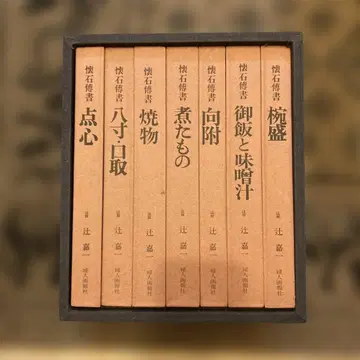 懐石傳書
椀盛
辻 嘉一
婦人画報社
懐石傳書
御飯と味噌汁
辻 嘉一
婦人画報社
懐石傳書
向附
辻 嘉一
婦人画報社
懐石傳書
煮たもの
辻 嘉一
婦人画報社
懐石傳書
焼物
辻 嘉一
婦人画報社
懐石傳書
八寸・口取
辻 嘉一
婦人画報社
懐石傳書
点心
辻 嘉一
婦人画報社